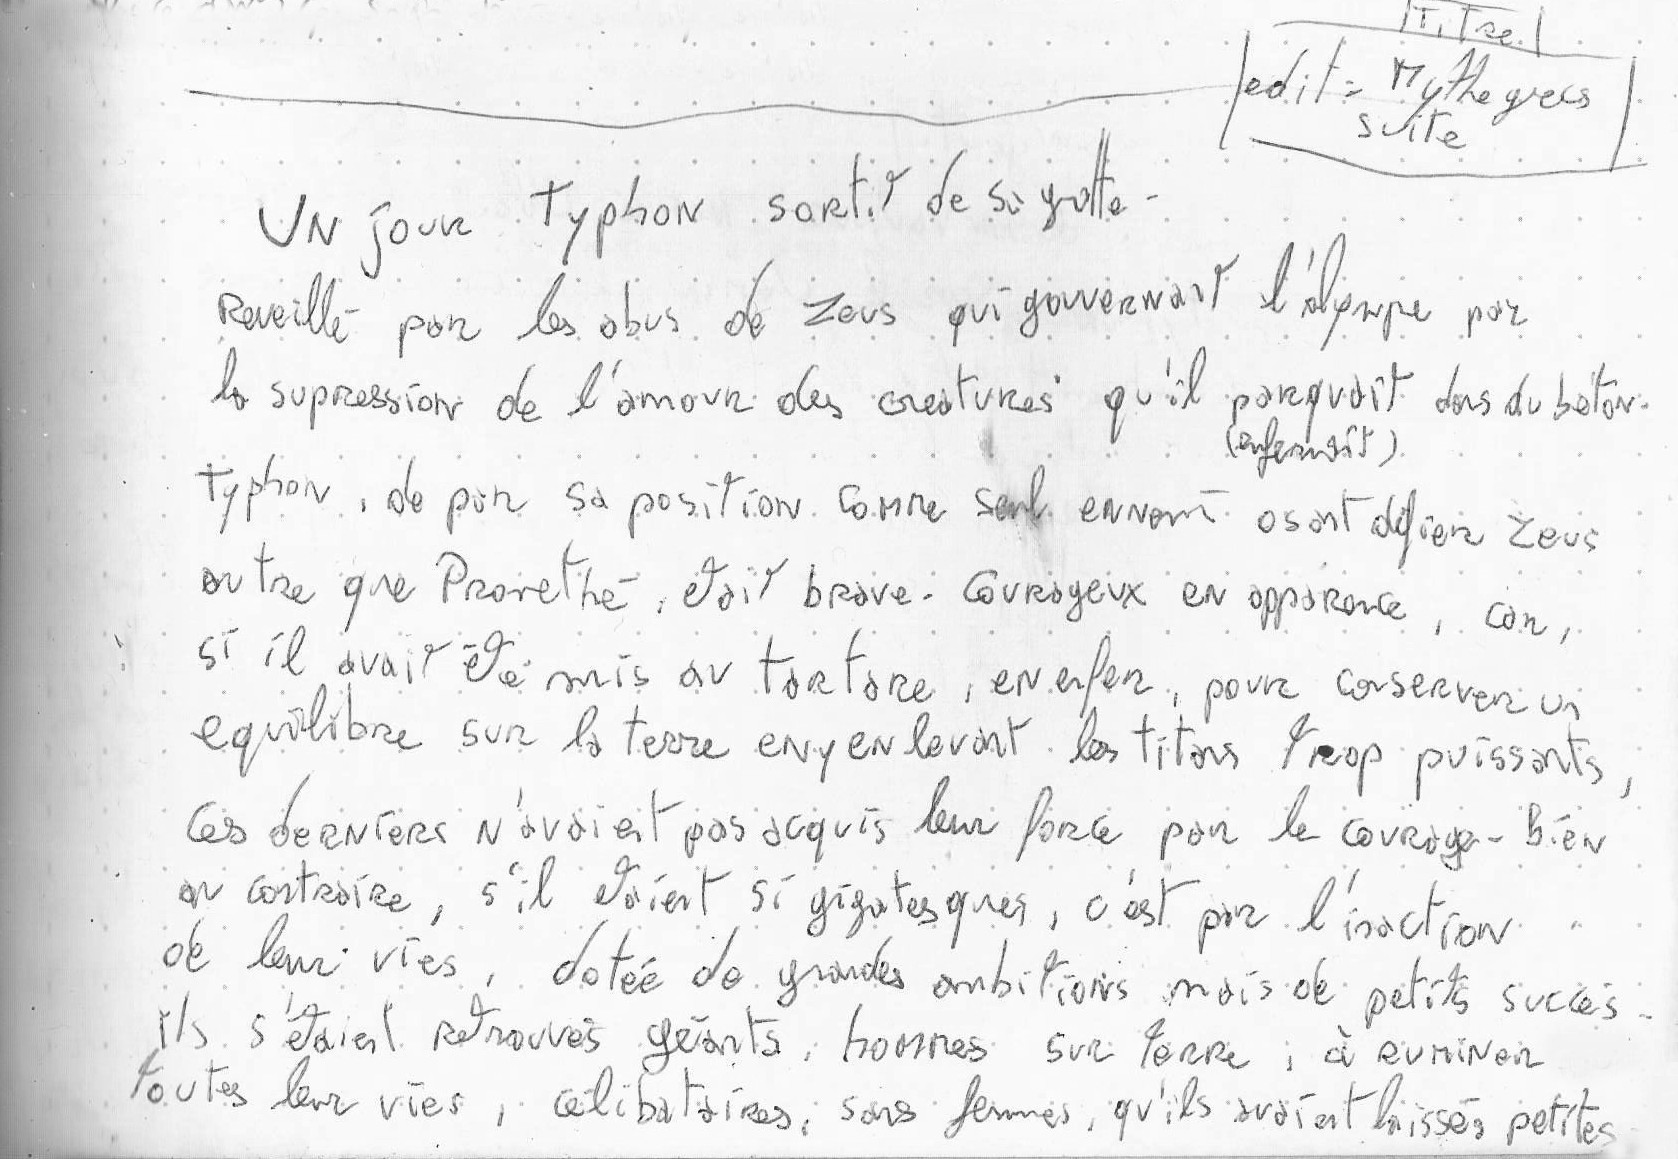 Titre
edit = Mythe grecs
suite
Un jour Typhon sortit de sa grotte -
Reveillé par les abus de Zeus qui gouvernait l'olympe par
la supression de l'amour des creatures qu'il parquait dans du béton.
(enfermait)
Typhon, de par sa position comme seul ennemi osant défier Zeus
autre que Promethé, était brave. Courageux en apparence, car,
si il avait été mis au tartare, en enfer, pour conserver un
equilibre sur la terre en y enlevant les titans trop puissants,
Ces derniers n'avaient pas acquis leur force par le courage - Bien
au contraire, s'il étaient si gigatesques, c'est par l'inaction
de leur vies, dotée de grandes ambitions mais de petits succès.
ils s'étaient retrouvés géants, hommes sur terre, à ruminer
toutes leur vies, célibataires, sans femmes, qu'ils avaient laissés petites